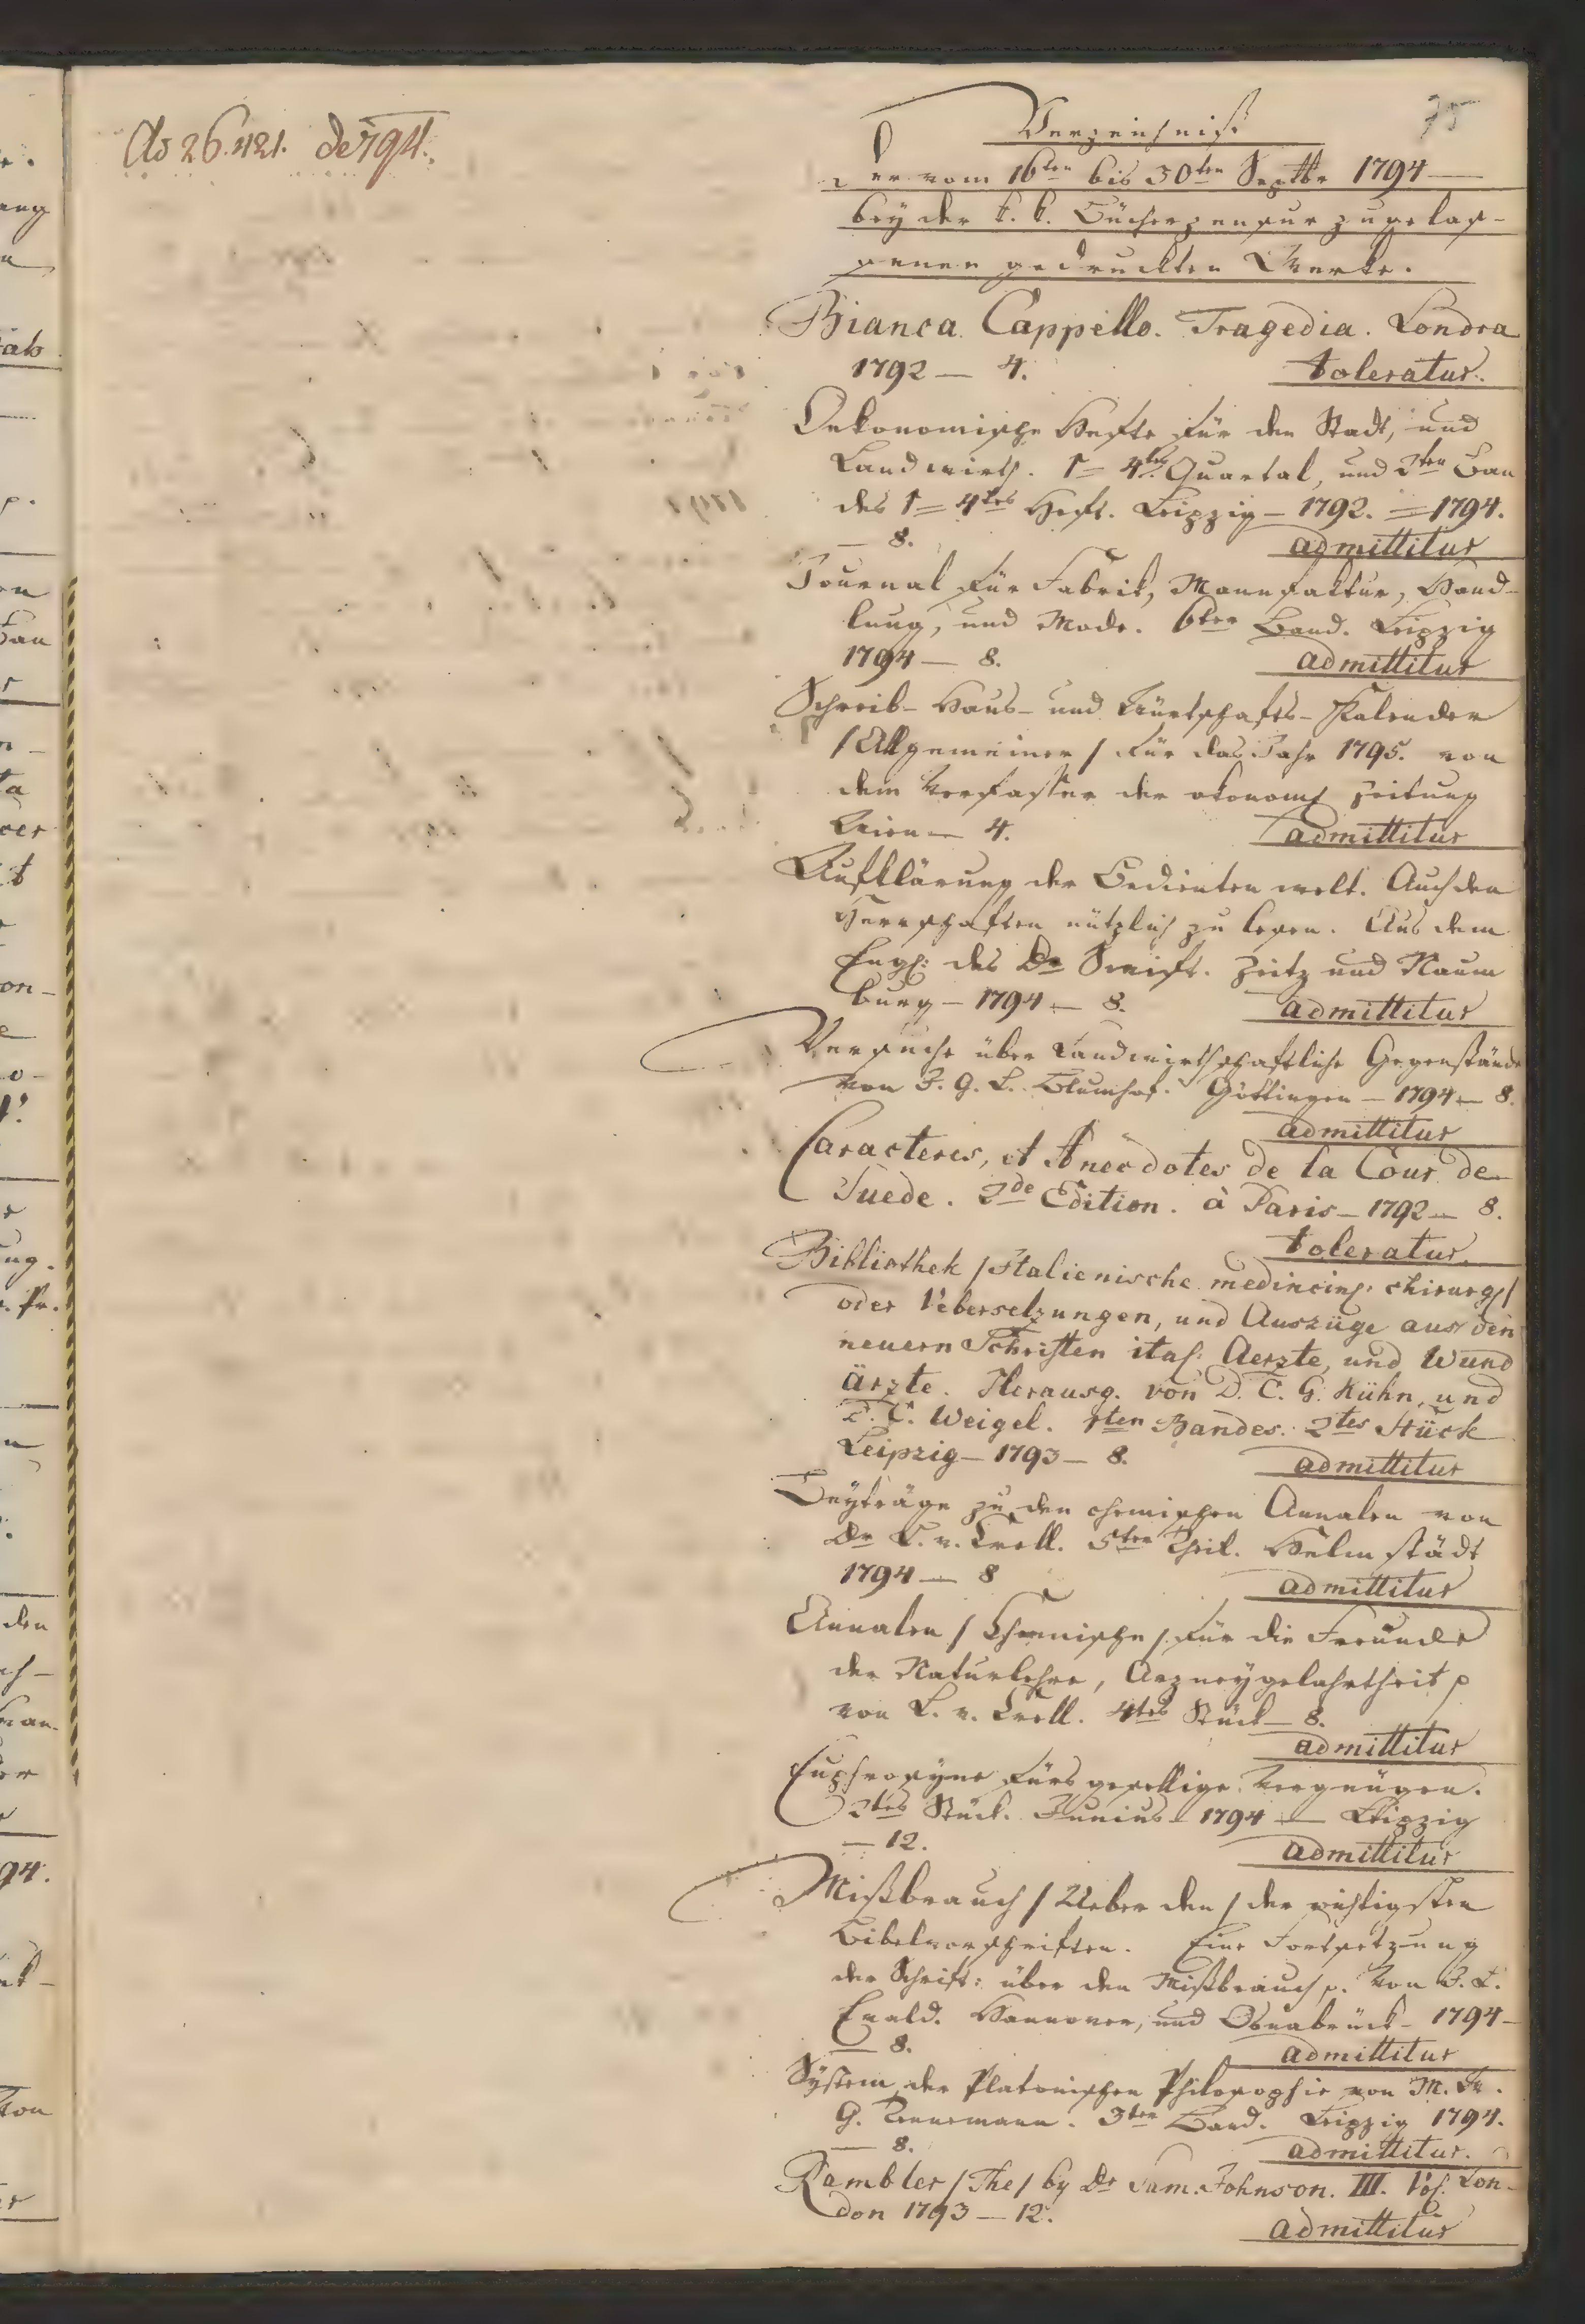 Ad 26.421. de 794.
75
Verzeichniß
der vom 16ten bis 30ten Septbr 1794 —
bey der k. k. Bücherzensur zugelas-
senen gedruckten Werke.
Bianca Cappello. Tragedia. Londra
1792 — 4. toleratur.
Oekonomische Hefte für den Stadt, und
Landwirth. 1 = 4tes Quartal, und 2ten Ban
des 1 = 4tes Heft. Leipzig — 1792. = 1794.
— 8. admittitur
Journal für Fabrik, Manufaktur, Hand-
lung, und Mode. 6ter Band. Leipzig
1794 — 8. admittitur
Schreib- Haus- und Würtschafts- Kalender
/ Allgemeiner / für das Jahr 1795. von
dem Verfasser der ökonom. Zeitung
Wien — 4. admittitur
Aufklärung der Bedienten welt. Auch den
Herrschaften nützlich zu lesen. Aus dem
Engl: des Dr Swift. Zeitz und Naum
burg — 1794 — 8. admittitur
Versuche über Landwirthschaftliche Gegenstände
von J. G. L. Blumhof. Göttingen — 1794 — 8.
admittitur
Caracteres, et Anecdotes de la Cour de
Suede. 2de Edition. à Paris — 1792 — 8.
toleratur.
Bibliothek / Italienische medincinl. chirurgl /
oder Uebersetzungen, und Auszüge aus den
neuern Schriften ital: Aerzte, und Wund
ärzte. Herausg. von D. C. G. Kühn, und
D. C. Weigel. 1ten Bandes. 2tes Stück
Leipzig — 1793 — 8. admittitur
Beyträge zu den chemischen Annalen von
Dr L. v. Crell. 5ter Theil. Helmstädt
1794 — 8 admittitur
Annalen / Chemische / für die Freunde
der Naturlehre, Arzneygelahrtheit p
von L. v. Crell. 4tes Stück — 8.
admittitur
Euphrosyne fürs gesellige Vergnügen.
2tes Stück. Junius — 1794 — Leipzig
— 12. admittitur
Mißbrauch / Ueber den / der wichtigsten
Bibelvorschriften. Eine Fortsetzung
der Schrift: über den Mißbrauch p. Von J. L.
Ewald. Hannover, und Osnabrück — 1794 —
— 8. admittitur
System der Platonischen Philosophie von M. W.
G. Tennemann. 3ter Band. Leipzig 1794.
— 8. admittitur.
Rambler / The / by Dr Sam. Johnson. III. Vol. Lon-
don 1793 — 12. admittitur